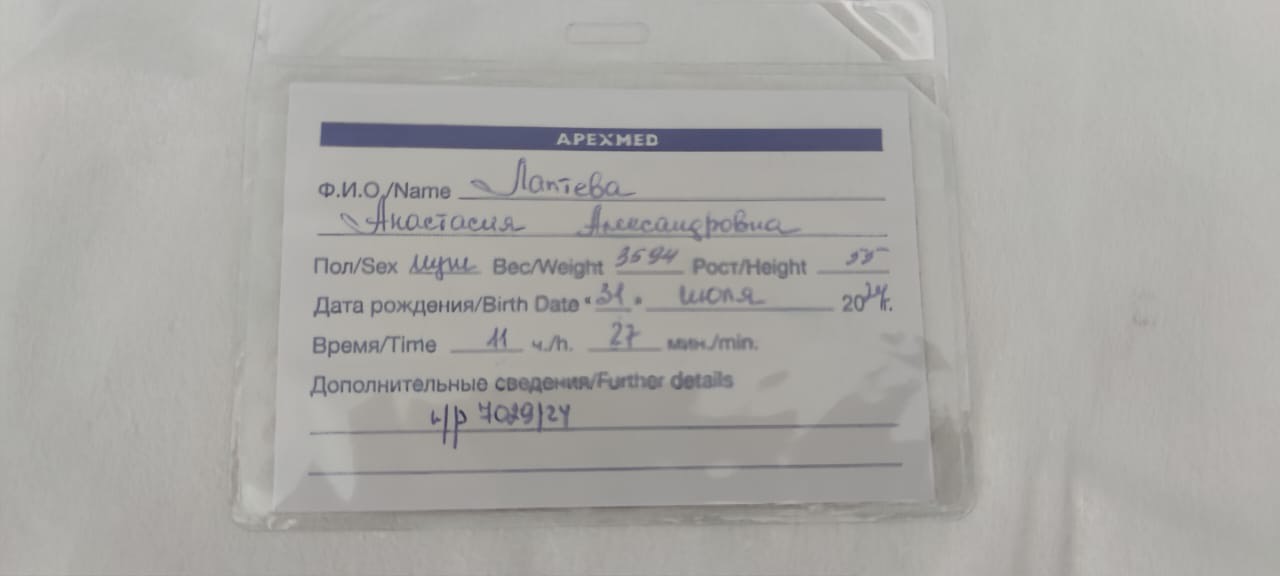 APEXMED
Ф.И.О./Name Лаптева
Анастасия Александровна
Пол/Sex муж Вес/Weight 3594 Рост/Height 55
Дата рождения/Birth Date "31" июля 2024г.
Время/Time 11 ч./h. 27 мин./min.
Дополнительные сведения/Further details
и/р 7029/24